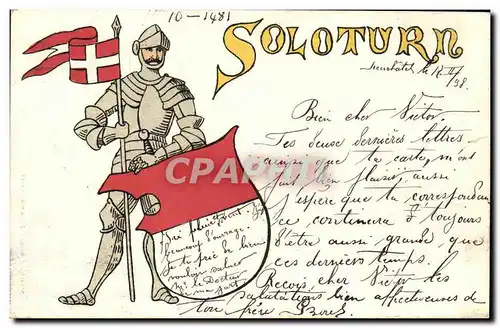 10 - 1481
SOLOTURN
Neuchâtel le 12 II/98.
Bien cher Victor.
Tes deuse dernières lettres
ainsi que la carte, m'ont
fait bien plaisir, aussi
j'espère que ta correspondan
ce continuera à toujours
s'être aussi grande, que
ces derniers temps.
Reçois, cher Victor les
salutations bien affectueuses de
ton frère Borel
J'ai pleinement
beaucoup d'ouvrage.
Je te prie de bien
vouloir saluer
Mr. le Docteur
de ma part.
CPARAMA